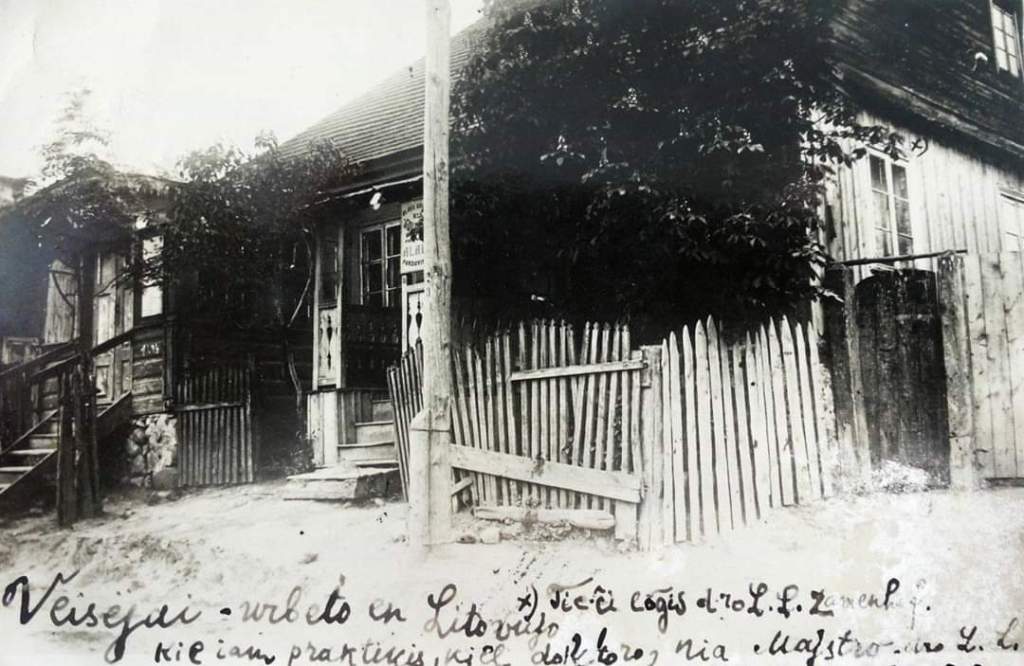 Veisėjai - urbeto en Litovujo
x) Tie-ĉi loĝis d-ro L. L. Zamenhof.
kie iam praktikis, kiel doktoro, nia Majstro - d-ro L. L.